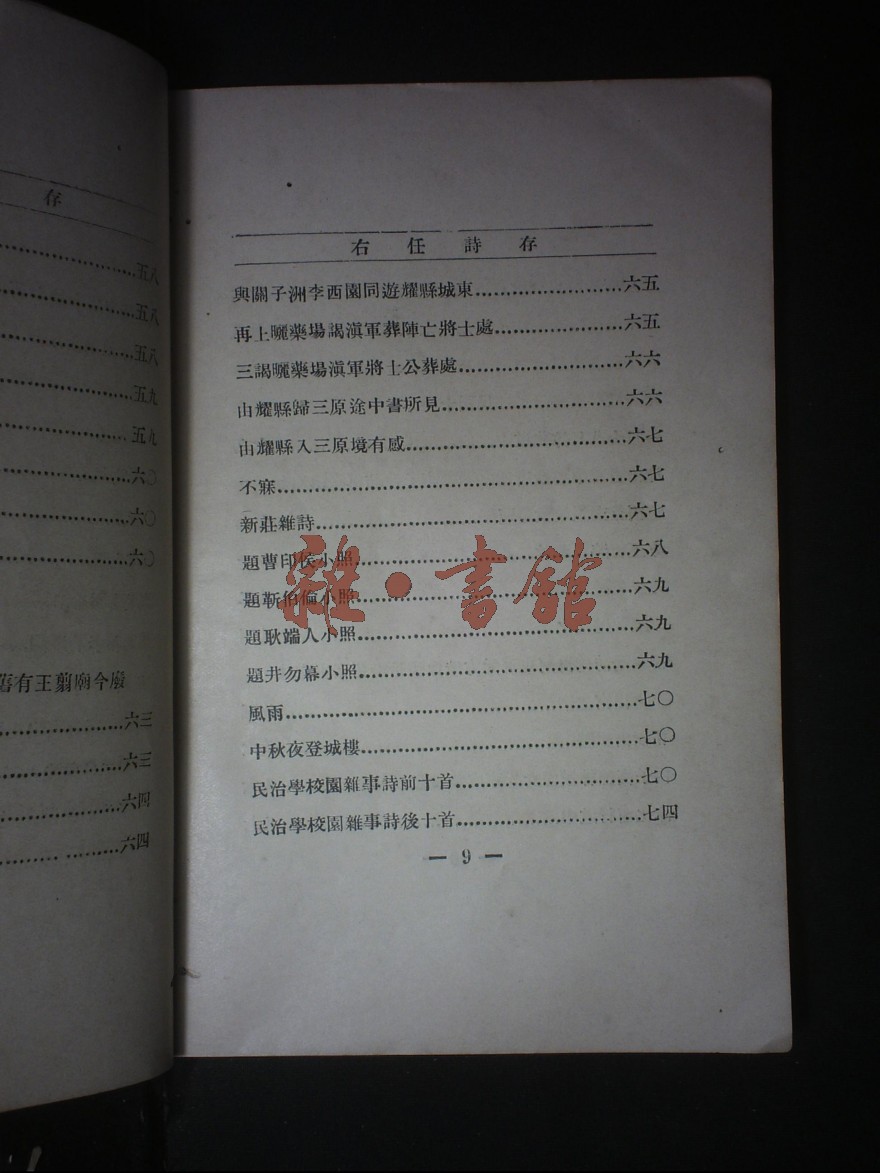 存
五八
五八
五八
五九
五九
六〇
六〇
六〇
舊有王翦廟今廢
六三
六三
六四
六四
右任詩存
與關子洲李西園同遊耀縣城東……六五
再上曬藥場謁滇軍葬陣亡將士處……六五
三謁曬藥場滇軍將士公葬處……六六
由耀縣歸三原途中書所見……六六
由耀縣入三原境有感……六七
不寐……六七
新莊雜詩……六七
題曹印侯小照……六八
題靳伯倫小照……六九
題耿端人小照……六九
題井勿幕小照……六九
風雨……七〇
中秋夜登城樓……七〇
民治學校園雜事詩前十首……七〇
民治學校園雜事詩後十首……七四
— 9 —
雜·書館